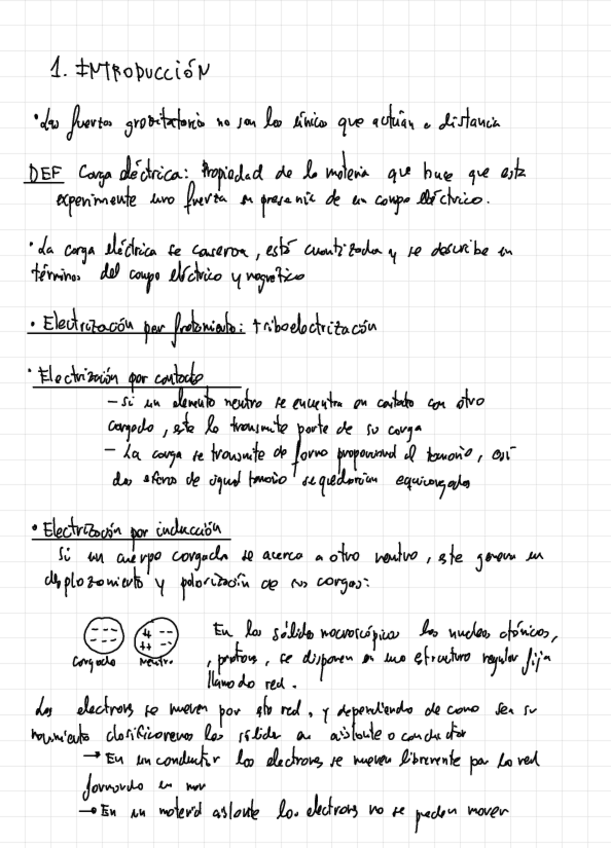 1. INTRODUCCIÓN
• Las fuerzas gravitatorias no son las únicas que actúan a distancia
DEF Carga eléctrica: Propiedad de la materia que hace que esta
experimente una fuerza en presencia de un campo eléctrico.
• La carga eléctrica se conserva, está cuantizada y se describe en
términos del campo eléctrico y magnético
• Electrización por frotamiento: triboelectrización
• Electrización por contacto
- Si un elemento neutro se encuentra en contacto con otro
cargado, este le transmite parte de su carga
- La carga se transmite de forma proporcional al tamaño, así
dos esferas de igual tamaño se quedarían equicargadas
• Electrización por inducción
Si un cuerpo cargado se acerca a otro neutro, este genera un
desplazamiento y polarización de sus cargas:
--- --- --- + -- ++ --
Cargado Neutro
En los sólidos macroscópicos los nucleos atómicos,
, protones, se disponen en una estructura regular fija
llamada red.
Los electrones se mueven por esta red, y dependiendo de como sea su
movimiento clasificaremos los sólidos en aislante o conductor
→ En un conductor los electrones se mueven libremente por la red
formando un mar
→ En un material aislante los electrones no se pueden mover